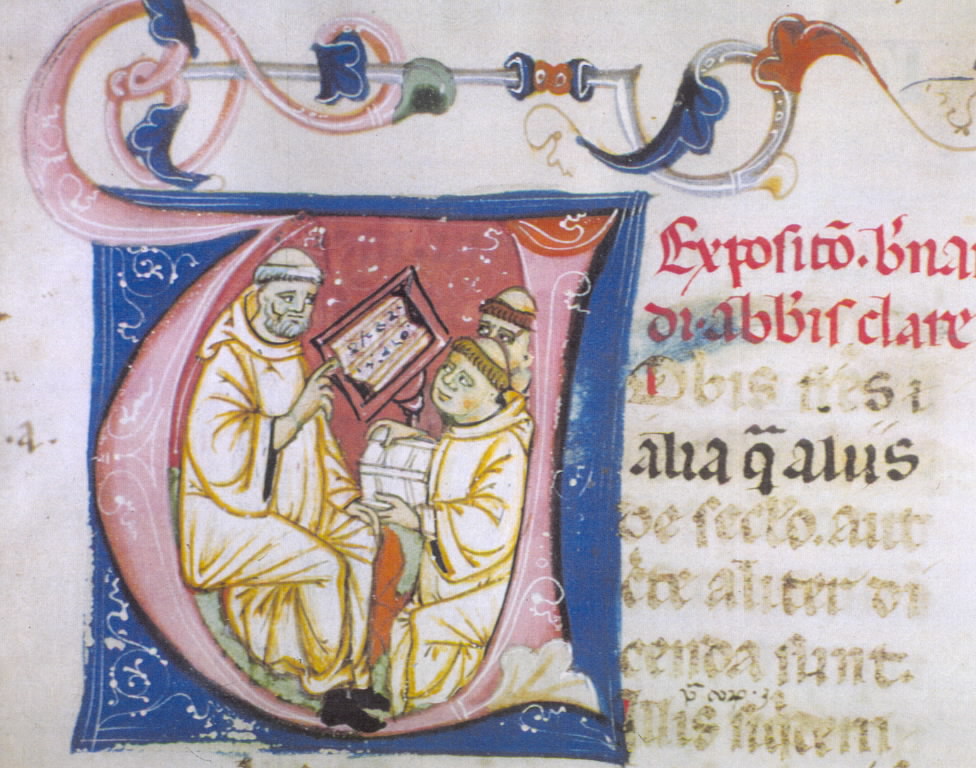 Expositō. b'nar
di. abb'is clare
Obis f̄res i
alia q̄ aliis
de sec̄lo. aut
c̄te aliter di
cenda sunt.
Illis siq̉dem